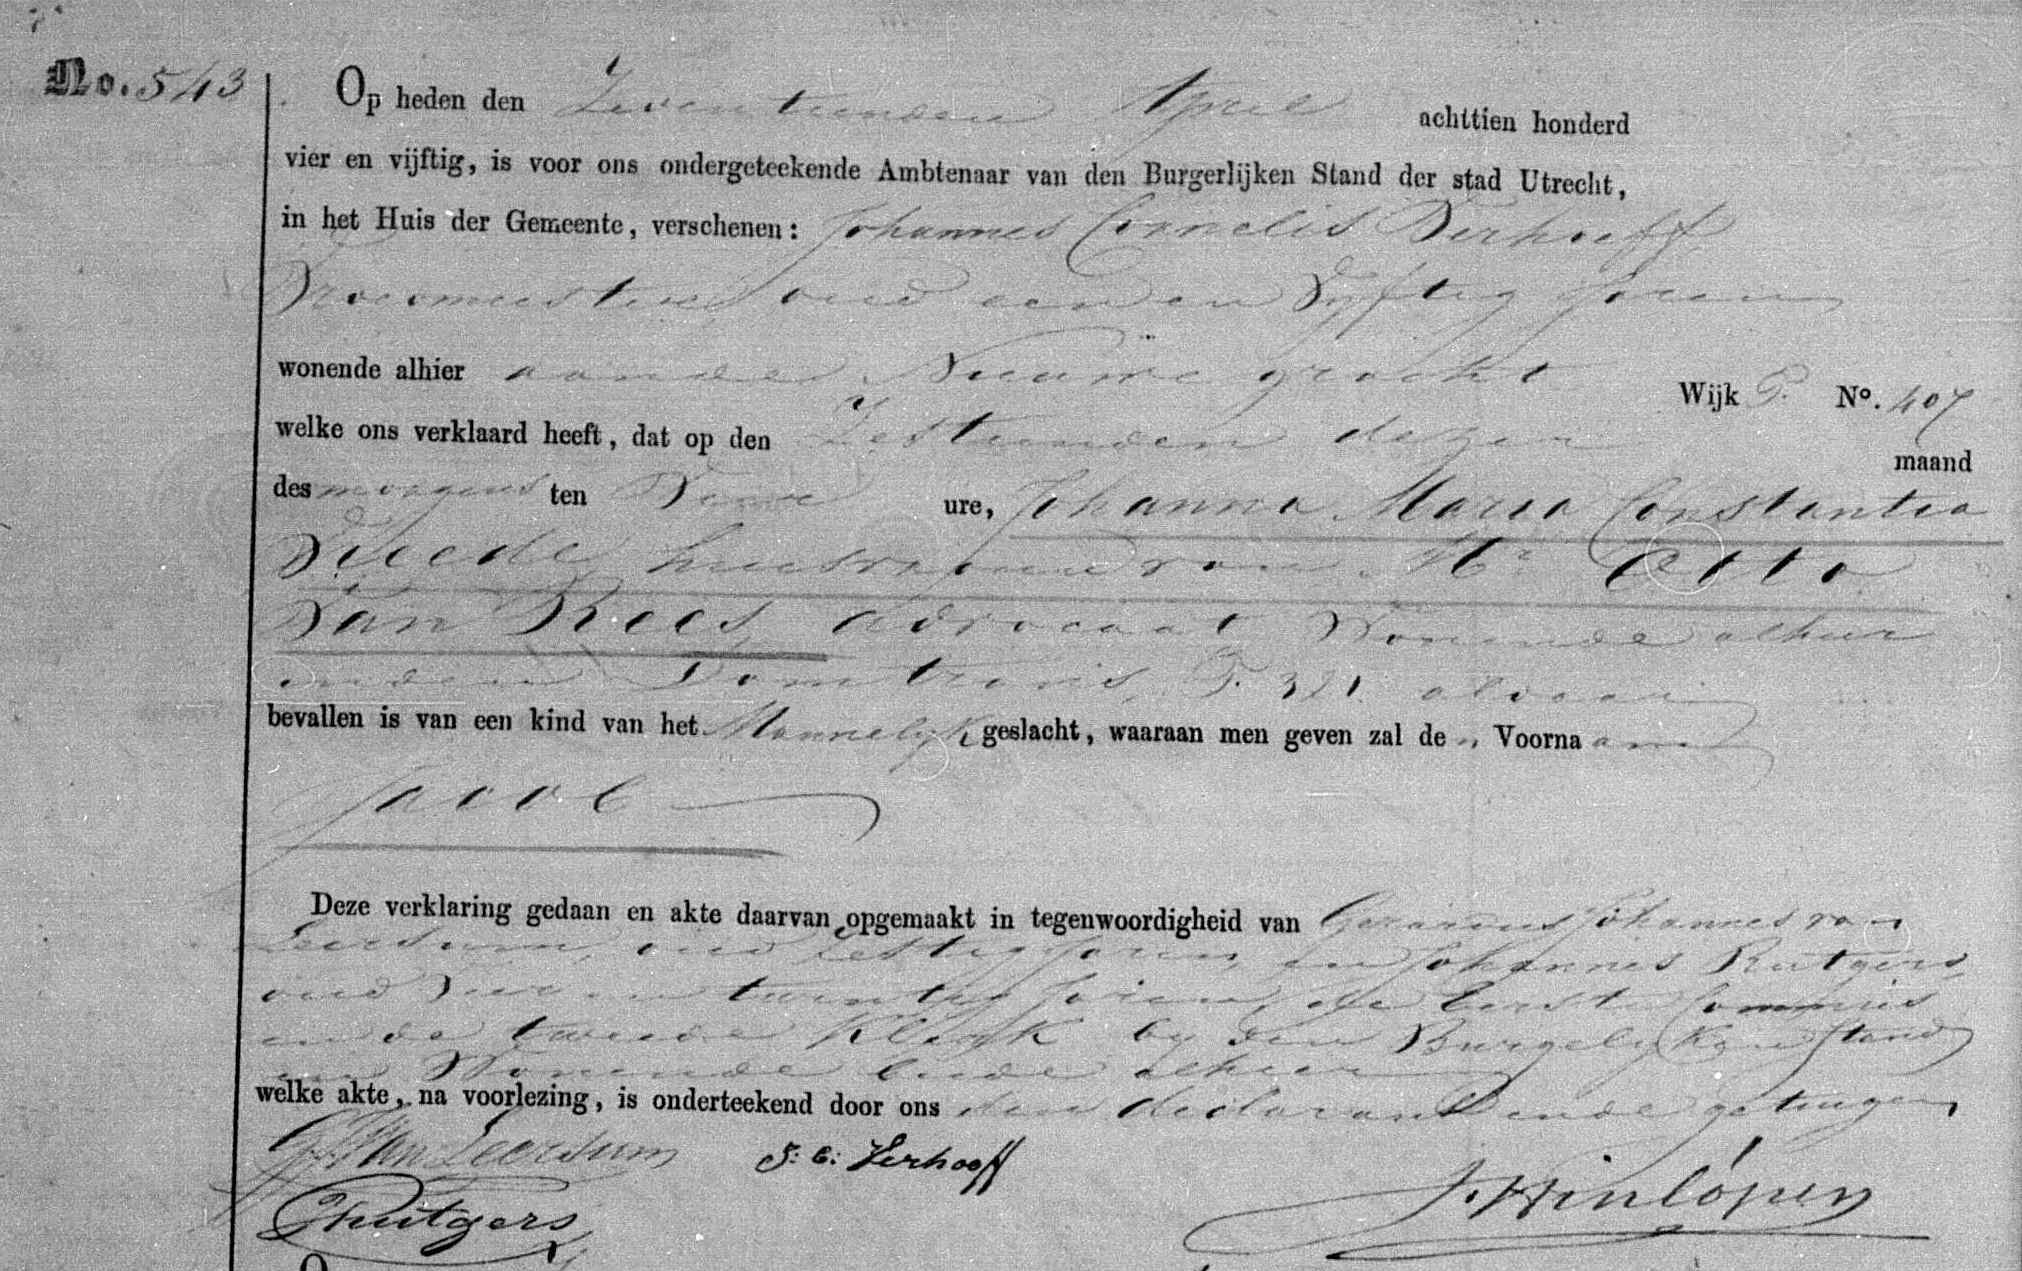 No. 543
Op heden den Zeventienden April achttien honderd
vier en vijftig, is voor ons ondergeteekende Ambtenaar van den Burgerlijken Stand der stad Utrecht,
in het Huis der Gemeente, verschenen: Johannes Cornelis Verhoeff
Vroedmeester oud een en Vyftig Jaren
wonende alhier aan de Nieuwe gracht Wijk G. No. 407
welke ons verklaard heeft, dat op den Zestienden dezer maand
des morgens ten Twee ure, Johanna Maria Constantia
Vreede huisvrouw van Mr. Otto
Van Rees, Advocaat Wonende alhier
in den Domtrans, G. 321 aldaar
bevallen is van een kind van het Mannelyk geslacht, waaraan men geven zal de n Voornaam
Jacob
Deze verklaring gedaan en akte daarvan opgemaakt in tegenwoordigheid van Gerardus Johannes van
Leersum, oud Zestig Jaren, en Johannes Rutgers
oud Vier en twintig Jaren, de Eerste Commies
en de tweede Klerk by den Burgelyken Stand
en Wonende beide alhier
welke akte, na voorlezing, is onderteekend door ons den declarant en de getuigen
GJ Van Leersum J: C: Verhoeff
JRutgers J. Hinlópen